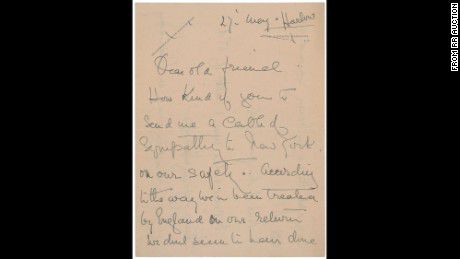 27th May - Harlow
Dear old friend.
How Kind of you to
send me a Cable of
Sympathy to New York
on our safety. According
to the way we've been treated
by England on our return
we dont seem to have done
FROM RR AUCTION